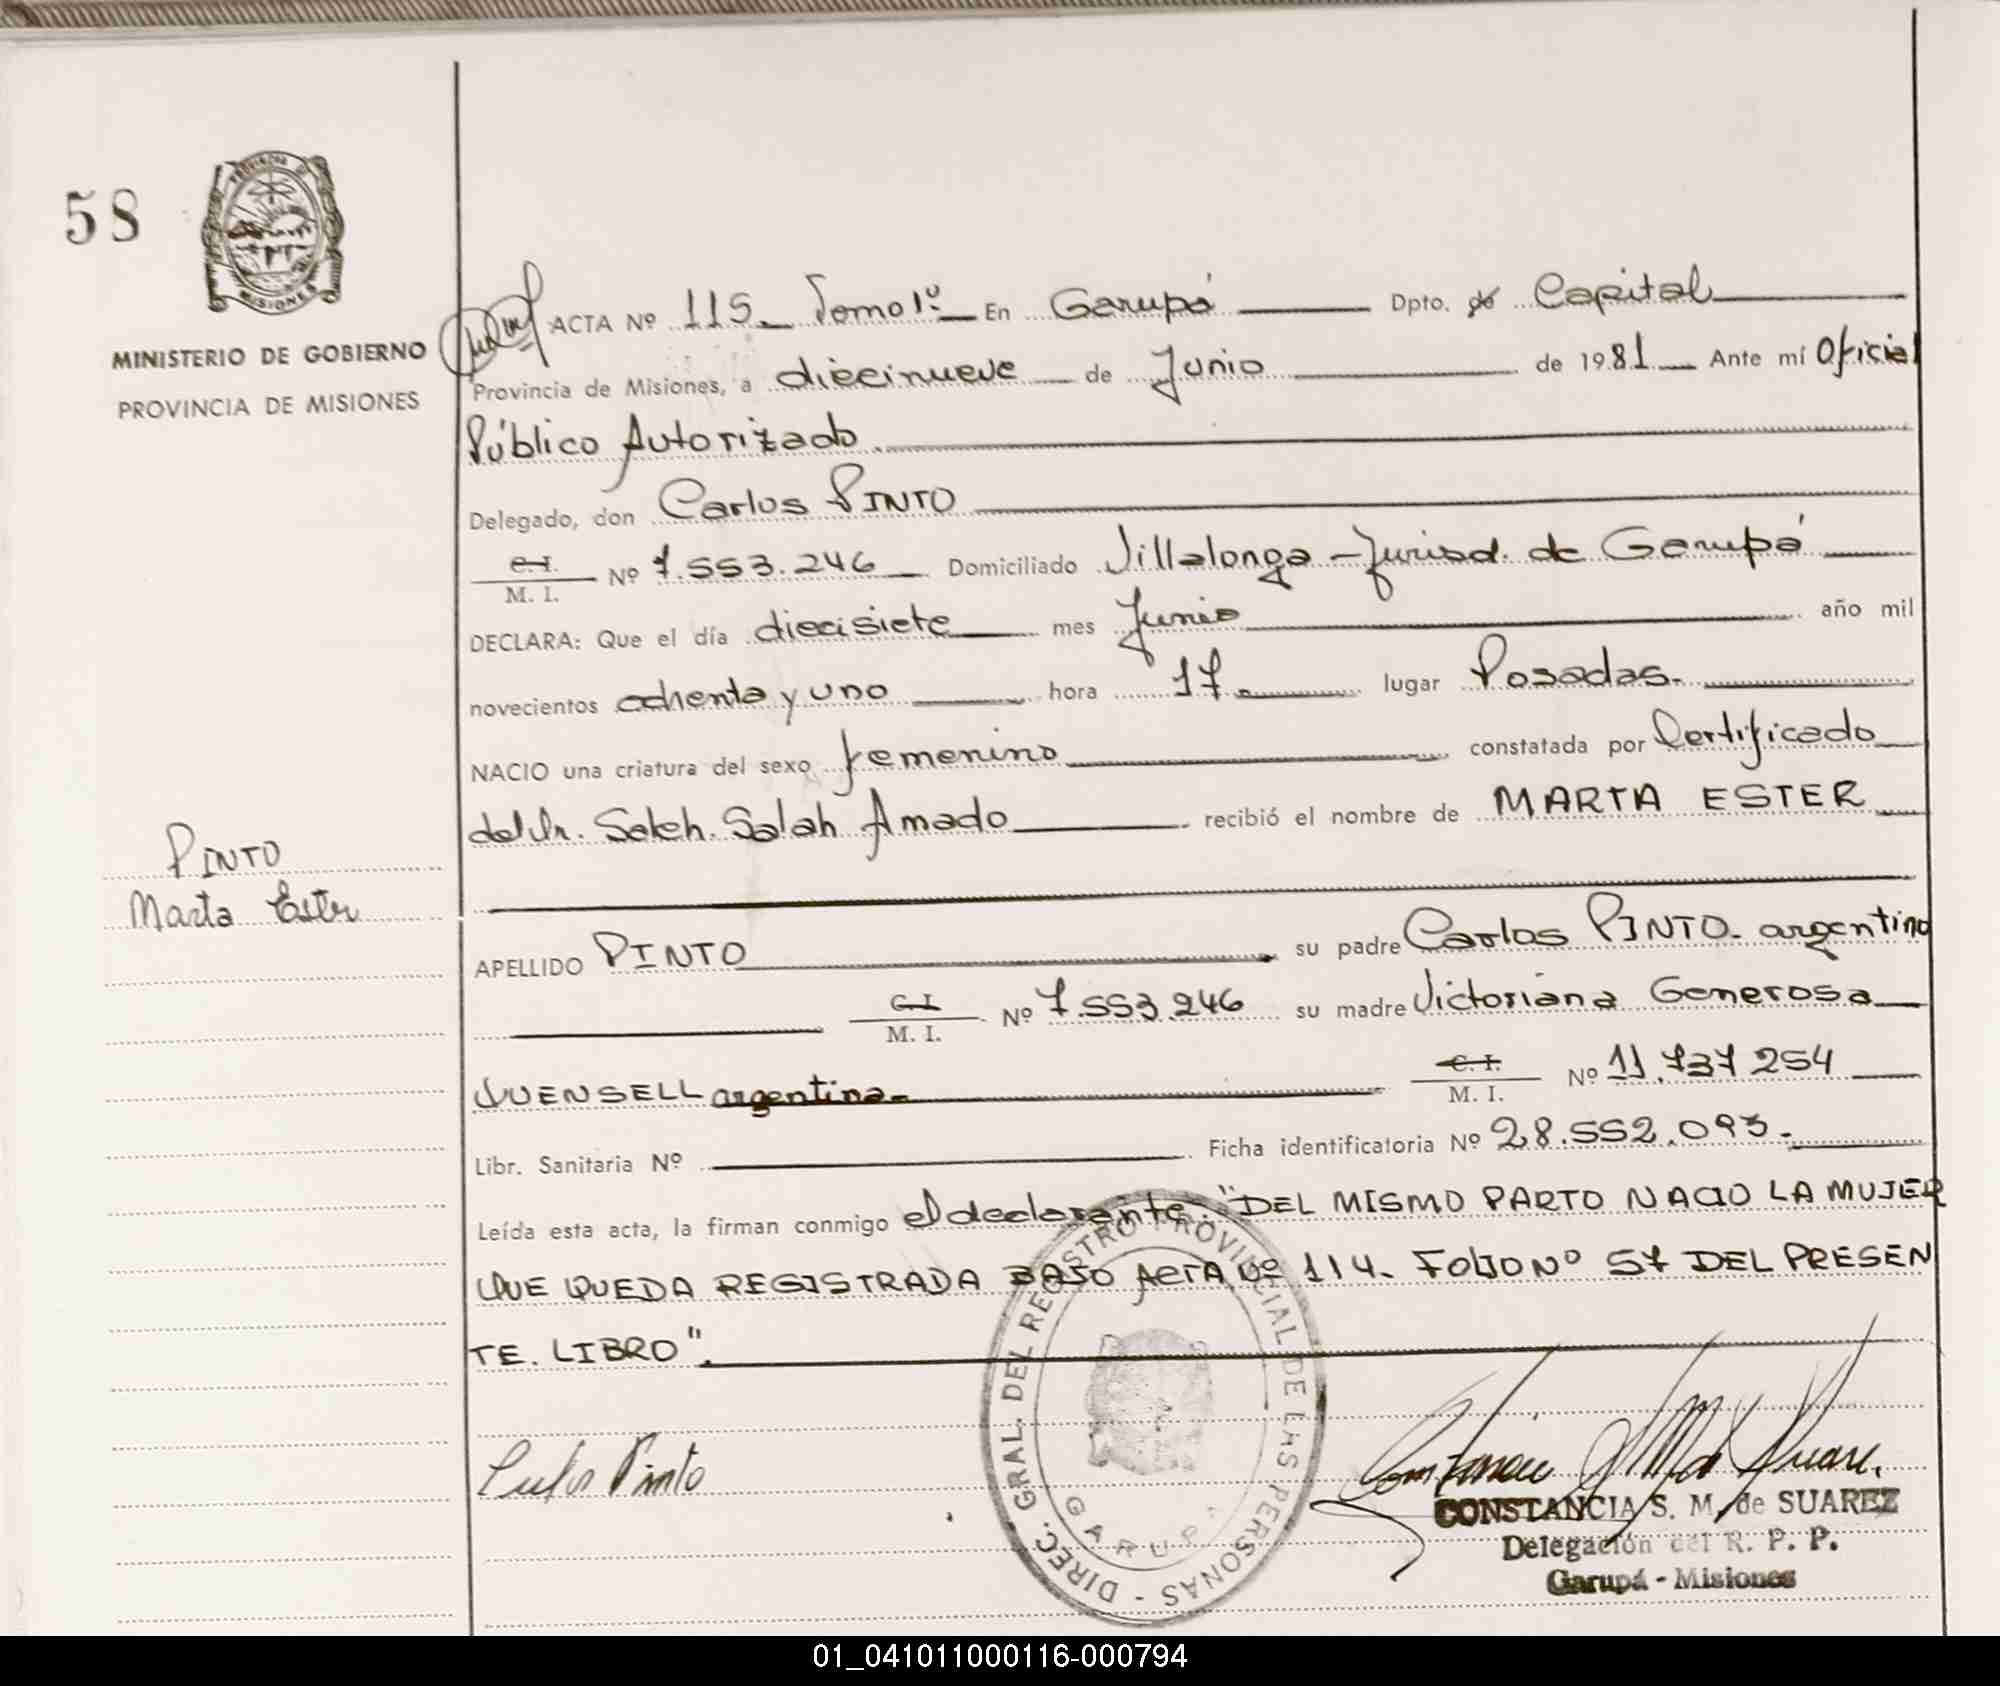 58
PROVINCIA DE
MISIONES
MINISTERIO DE GOBIERNO
PROVINCIA DE MISIONES
ACTA Nº 115 Tomo 1º En Garupá Dpto. de Capital
Provincia de Misiones, a diecinueve de Junio de 1981 Ante mí Oficial
Público Autorizado
Delegado, don Carlos PINTO
C.I.
M. I. Nº 7.553.246 Domiciliado Villalonga - Jurisd. de Garupá
DECLARA: Que el día diecisiete mes Junio año mil
novecientos ochenta y uno hora 17. lugar Posadas.
NACIO una criatura del sexo femenino constatada por Certificado
del Dr. Saleh. Salah Amado recibió el nombre de MARTA ESTER
PINTO
Marta Ester
APELLIDO PINTO su padre Carlos PINTO. argentino
C.I.
M. I. Nº 7.553.246 su madre Victoriana Generosa
QUENSELL argentina.
C. I.
M. I. Nº 11.737.254
Libr. Sanitaria Nº Ficha identificatoria Nº 28.552.093.
Leída esta acta, la firman conmigo el declarante. "DEL MISMO PARTO NACIO LA MUJER
QUE QUEDA REGISTRADA BAJO ACTA Nº 114. FOLIO Nº 57 DEL PRESEN
TE. LIBRO".
DIREC. GRAL. DEL REGISTRO PROVINCIAL DE LAS PERSONAS -
GARUPA
Pinto
CONSTANCIA S. M. de SUAREZ
Delegación del R. P. P.
Garupá - Misiones
01_041011000116-000794